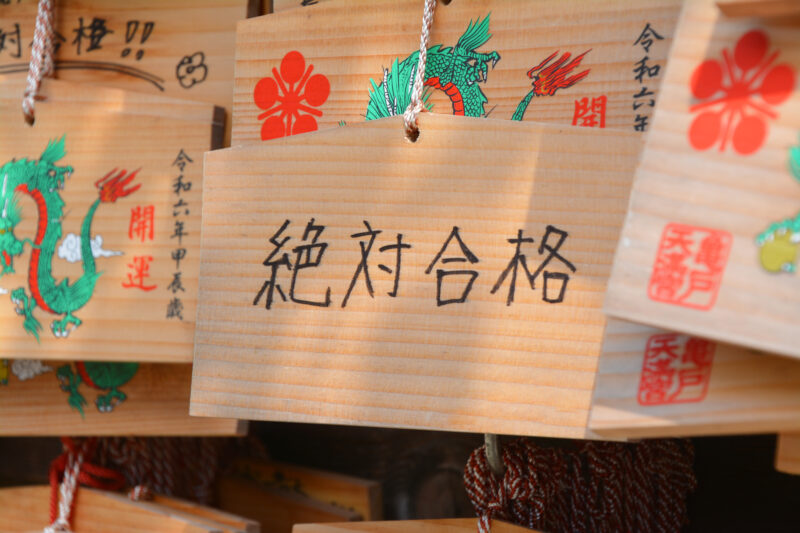 対合格!!
令和六
開
令和六年甲辰歳
開運
絶対合格
亀戸
天満宮
亀戸
天満宮